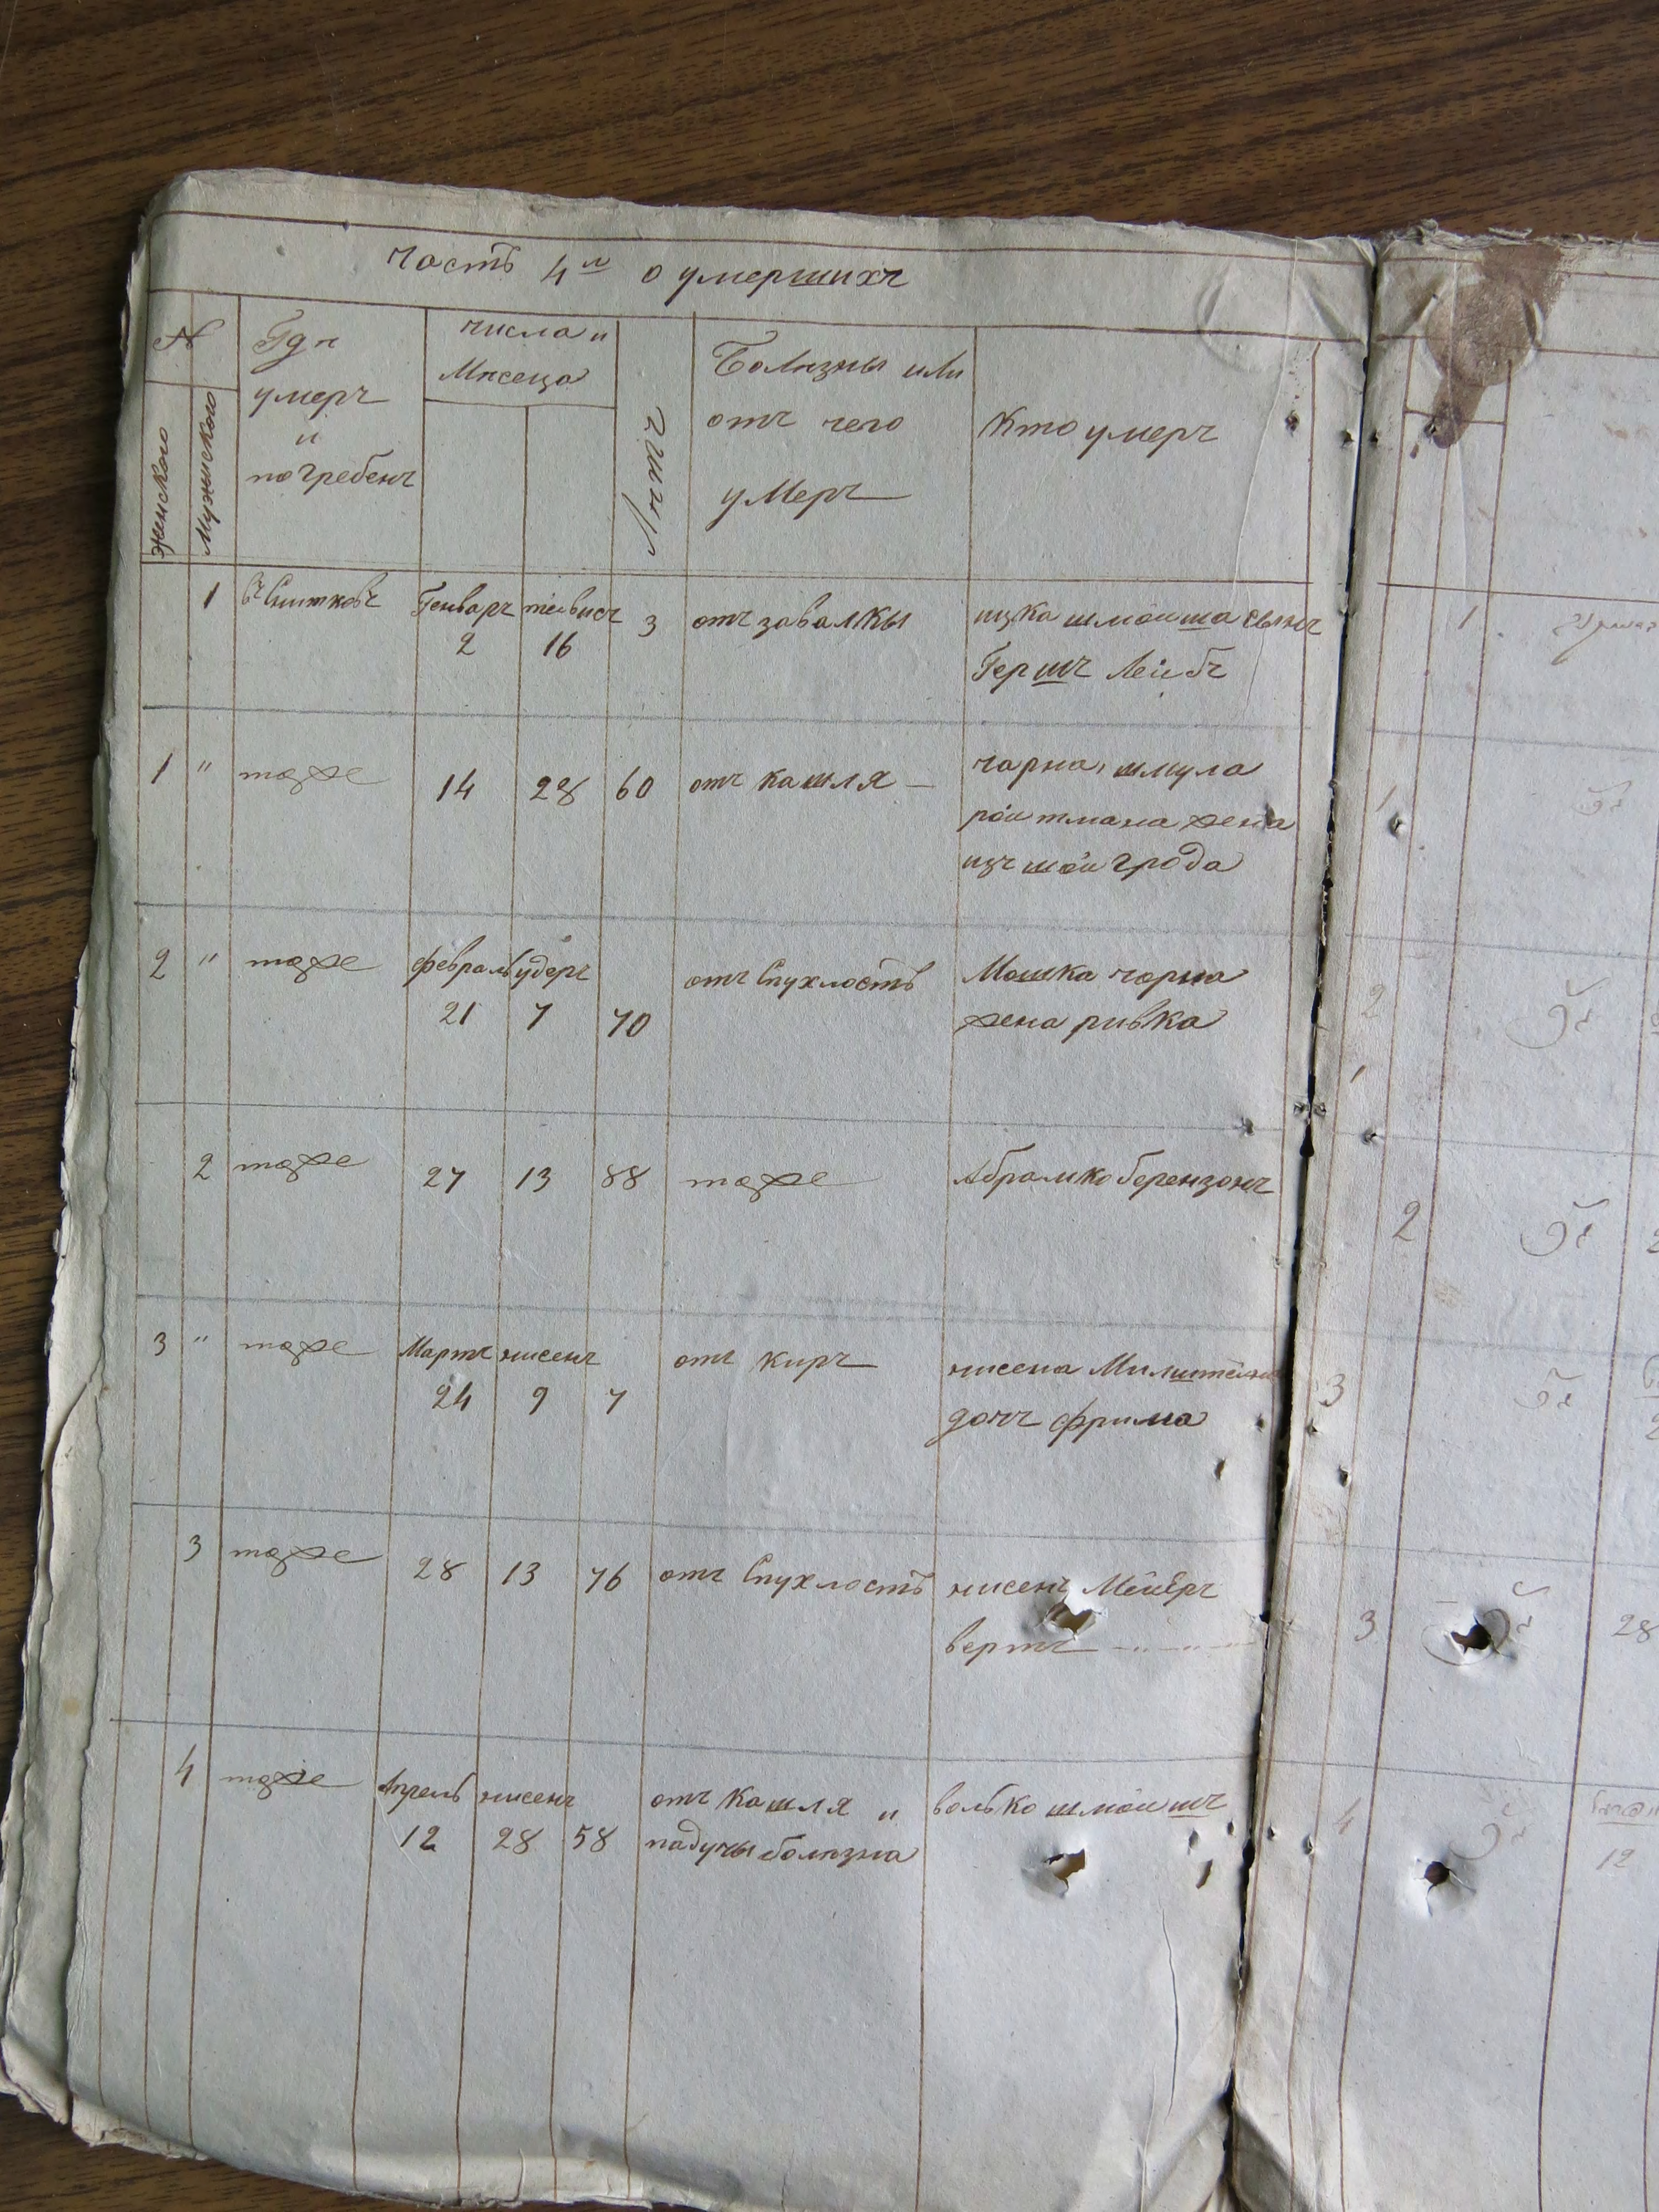 Часть 4я о умершихъ
№
Гдѣ
умеръ
и
погребенъ
числа и
Мѣсеца
Лѣтъ
Болѣзны или
отъ чего
умеръ
Кто умеръ
женского
Мужиского
1 въ Снитковъ Генваръ 2 тейвисъ 16 3 отъ завалкы ицка шмоиша сынъ
Гершъ Лейбъ
1 " тоже 14 28 60 отъ кашля — чарна, шмула
ройтмана жена
изъ шаигрода
2 " тоже февраль 21 удеръ 7 70 отъ Спухлость Мошка чорна
жена ривка
2 тоже 27 13 88 тоже Абрамко беренzонъ
3 " тоже Мартъ 24 нисенъ 9 7 отъ киръ нисена Милштейна
дочъ фрима
3 тоже 28 13 76 отъ Спухлость нисенъ Мейеръ
вертъ
4 тоже Апрель 12 нисенъ 28 58 отъ кашля и волько шмоишъ
падучы болѣзна
1
1
2
2
3
3 28
4 12